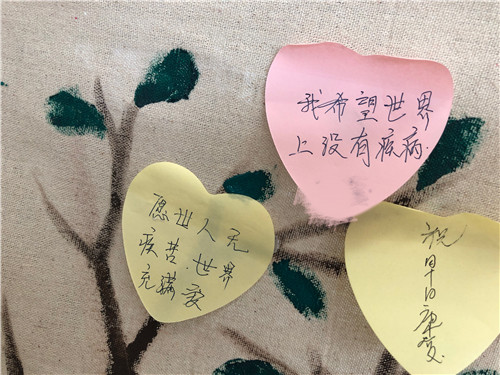 我希望世界
上没有疾病.
愿世人无
疾苦.世界
充满爱
祝
早日康复